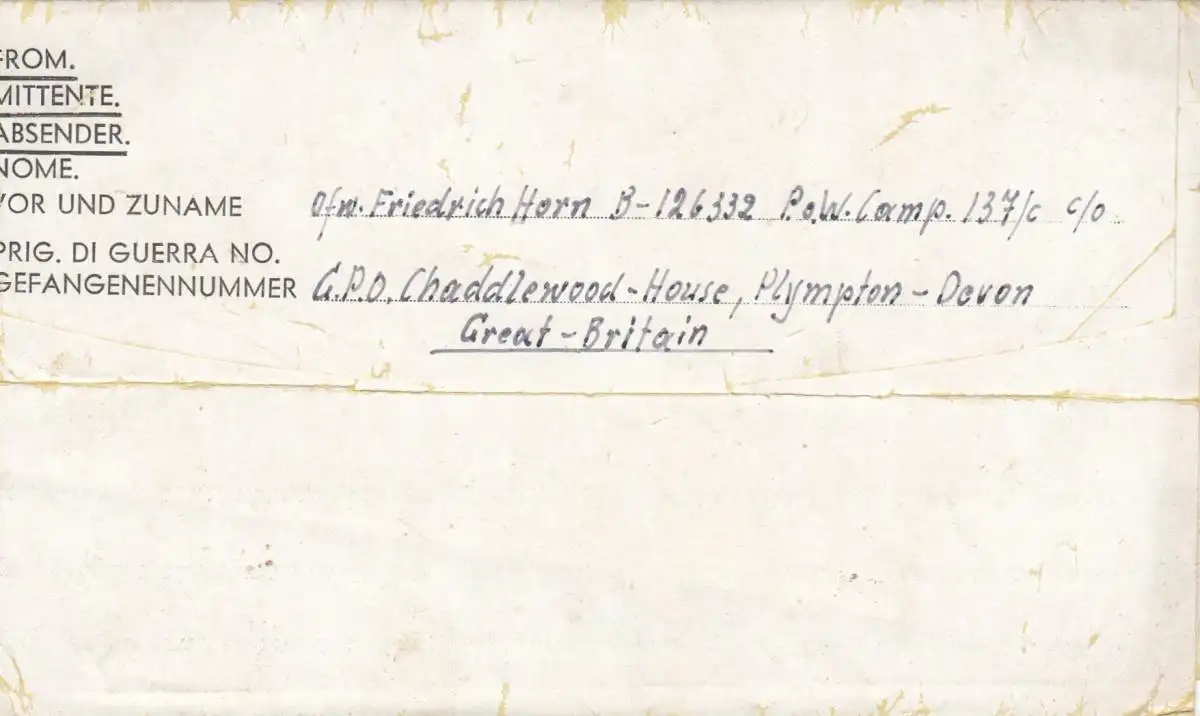 FROM.
MITTENTE.
ABSENDER.
NOME.
VOR UND ZUNAME Ofw. Friedrich Horn B-126332 P.o.W. Camp. 137/c c/o
PRIG. DI GUERRA NO.
GEFANGENENNUMMER G.P.O. Chaddlewood-House, Plympton-Devon
Great-Britain